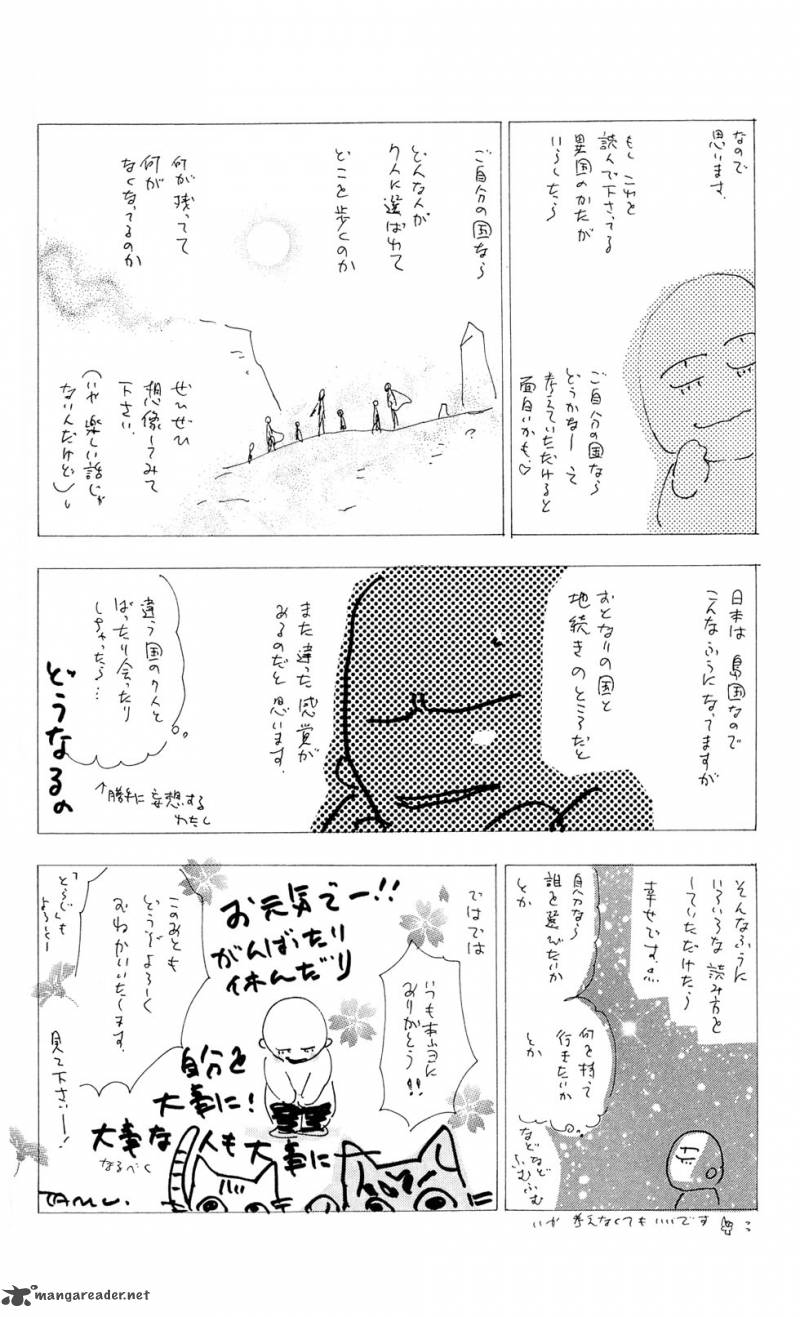 なので
思います。
もし これを
読んで下さってる
異国のかたが
いらしたら
ご自分の国なら
どうかなーって
考えていただけると
面白いかも。♡
ご自分の国なら
どんな人が
7人に選ばれて
どこを歩くのか
何が残ってて
何が
なくなってるのか
ぜひぜひ
想像してみて
下さい。
(いや 楽しい話じゃ
ないんだけど)
?
日本は 島国なので
こんなふうになってますが
おとなりの国と
地続きのところだと
また違った感覚が
あるのだと 思います。
違う国の7人と
ばったり会ったり
しちゃったら…
どうなるの
↑勝手に妄想する
わたし
そんなふうに
いろいろな 読み方を
していただけたら
幸せです。
自分なら
誰を選びたいか
とか
何を持って
行きたいか
とか
などなど
ふむふむ
いや 考えなくてもいいです
ではでは
いつも本当に
ありがとう!!
お元気でー!!
がんばったり
休んだり
自分を
大事に!
大事な
人も大事に
なるべく
このあとも
どうぞよろしく
おねがいいたします。
「とらじ」も
よろしくー
見て下さいー!
TAMU.
mangareader.net